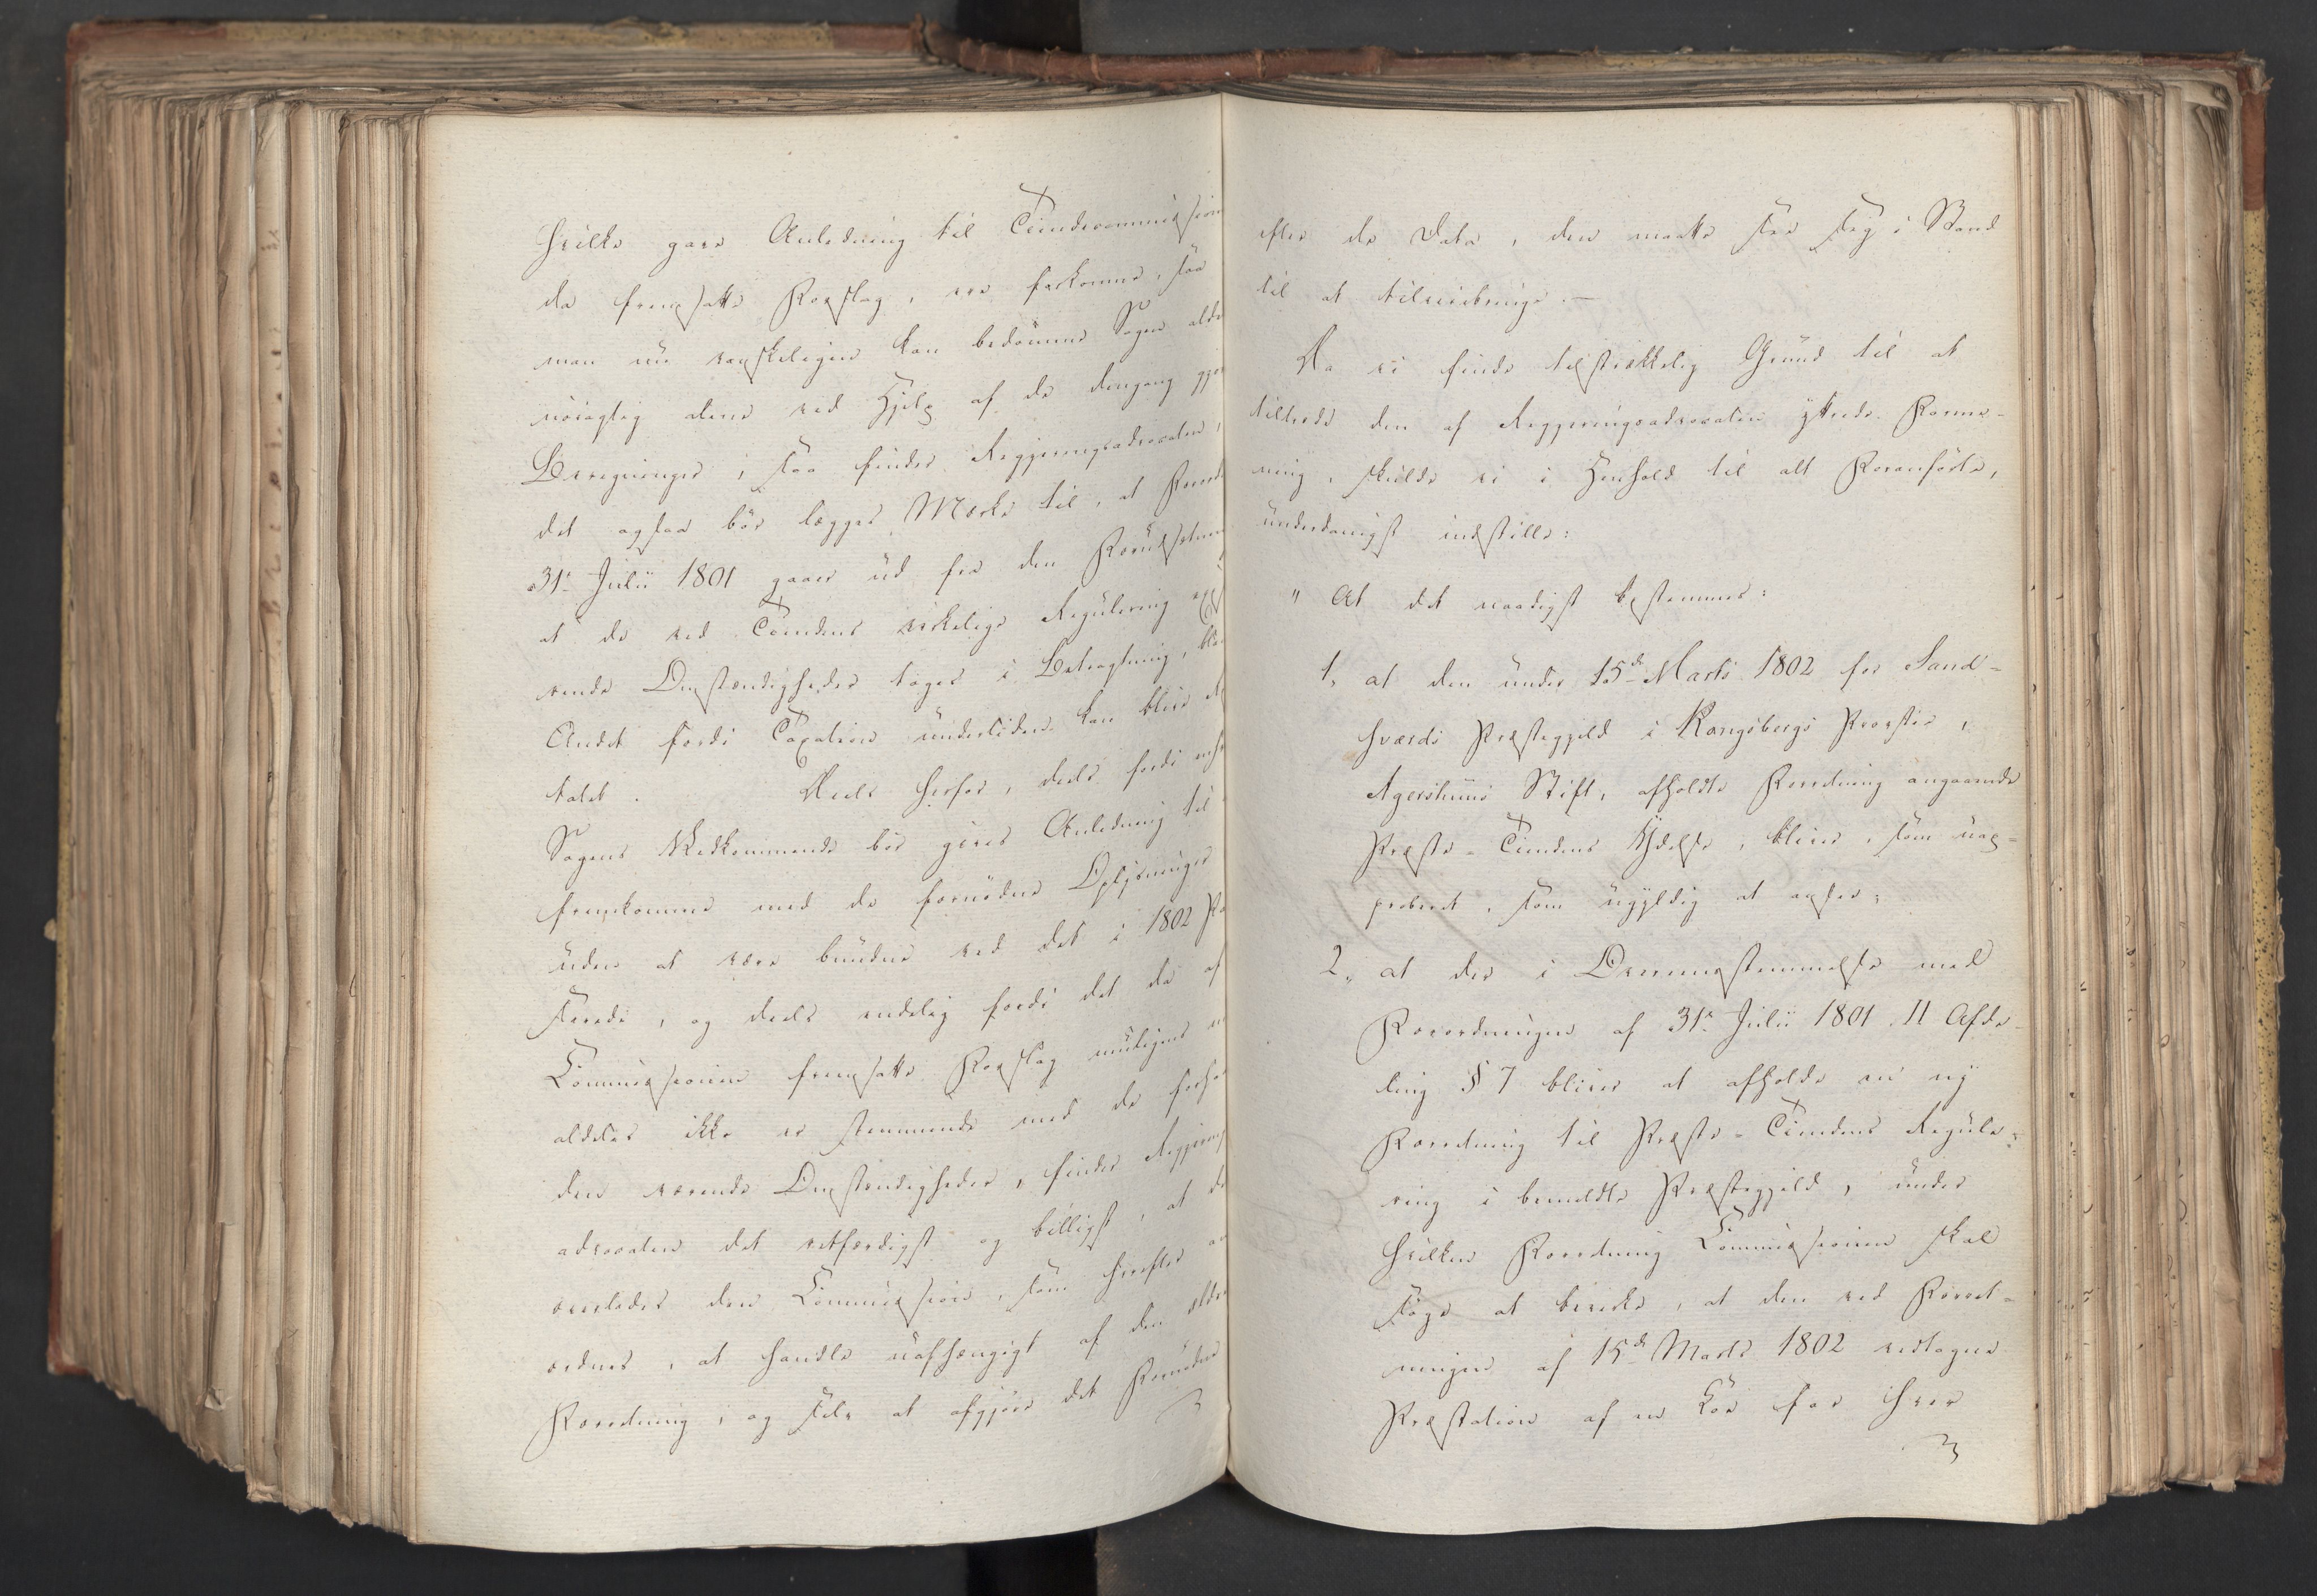 hvilke gave Anledning til Tiendecommission
da fremsatte Forslag, ere forkomne, saa
man nu vanskeligen kan bedømme Sagen alde
nøiagtig alene ved Hjelp af de dengang gjor
Beregninger; saa finder Regjeringsadvocaten,
det ogsaa bør lægges Mærke til, at Forord
31te Julii 1801 gaaer ud fra den Forudsætnin
at de ved Tiendens virkelige Regulering
rende Omstændigheder tages i Betragtning,
Andet fordi Taxation undertiden kan blive
talet. Deels herfor, deels fordi
Sagens Vedkommende bør gives Anledning til
fremkomme med de fornødne Oplysninger
uden at være bundne ved det i 1802 Pa
serede, og deels endelig fordi det da af
Commissionen fremsatte Forslag muligens
aldeles ikke er stemmende med de forhaa
den værende Omstændigheder, finder Regjerings
advocaten det retfærdigst og billigst, at de
overlades den Commission, som herefter
ordnes, at handle uafhængigt af den ældre
Forretning, og selv at afgjøre det Fornødne
efter de Data, den maatte see sig i Stand
til at tilveiebringe. —
Da vi finde tilstrækkelig Grund til at
tiltræde den af Regjeringsadvocaten yttrede Forme-
ning, skulde vi i Henhold til alt Foranførte,
underdanigst indstille:
" At det naadigst bestemmes:
1, at den under 15de Marts 1802 for Sand-
sværds Præstegjeld i Kongsbergs Provstie,
Agershuus Stift, afholdte Forretning angaaende
Præste-Tiendens Ydelse, bliver, som uap-
proberet, som ugyldig at ansee;
2, at der i Overeensstemmelse med
Forordningen af 31te Julii 1801 II Afde-
ling § 7 bliver at afholde en ny
Forretning til Præste-Tiendens Regule-
ring i bemeldte Præstegjeld, under
hvilken Forretning Commissionen skal
søge at bevirke, at den ved Forret-
ningen af 15de Marts 1802 vedtagne
Præstation af en Koe for hver